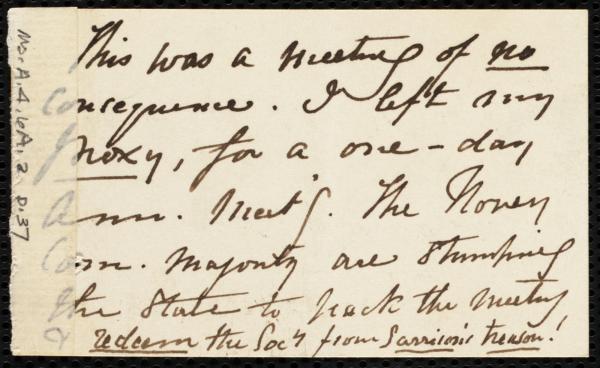 This was a meeting of no
consequence. I left my
proxy, for a one-day
Ann. Meet'g. The Novem
Com. Majority are stumping
the State to pack the meeting
& redeem the Soc'y from Garrison's treason!
Ms.A.4.6A.2 p.37